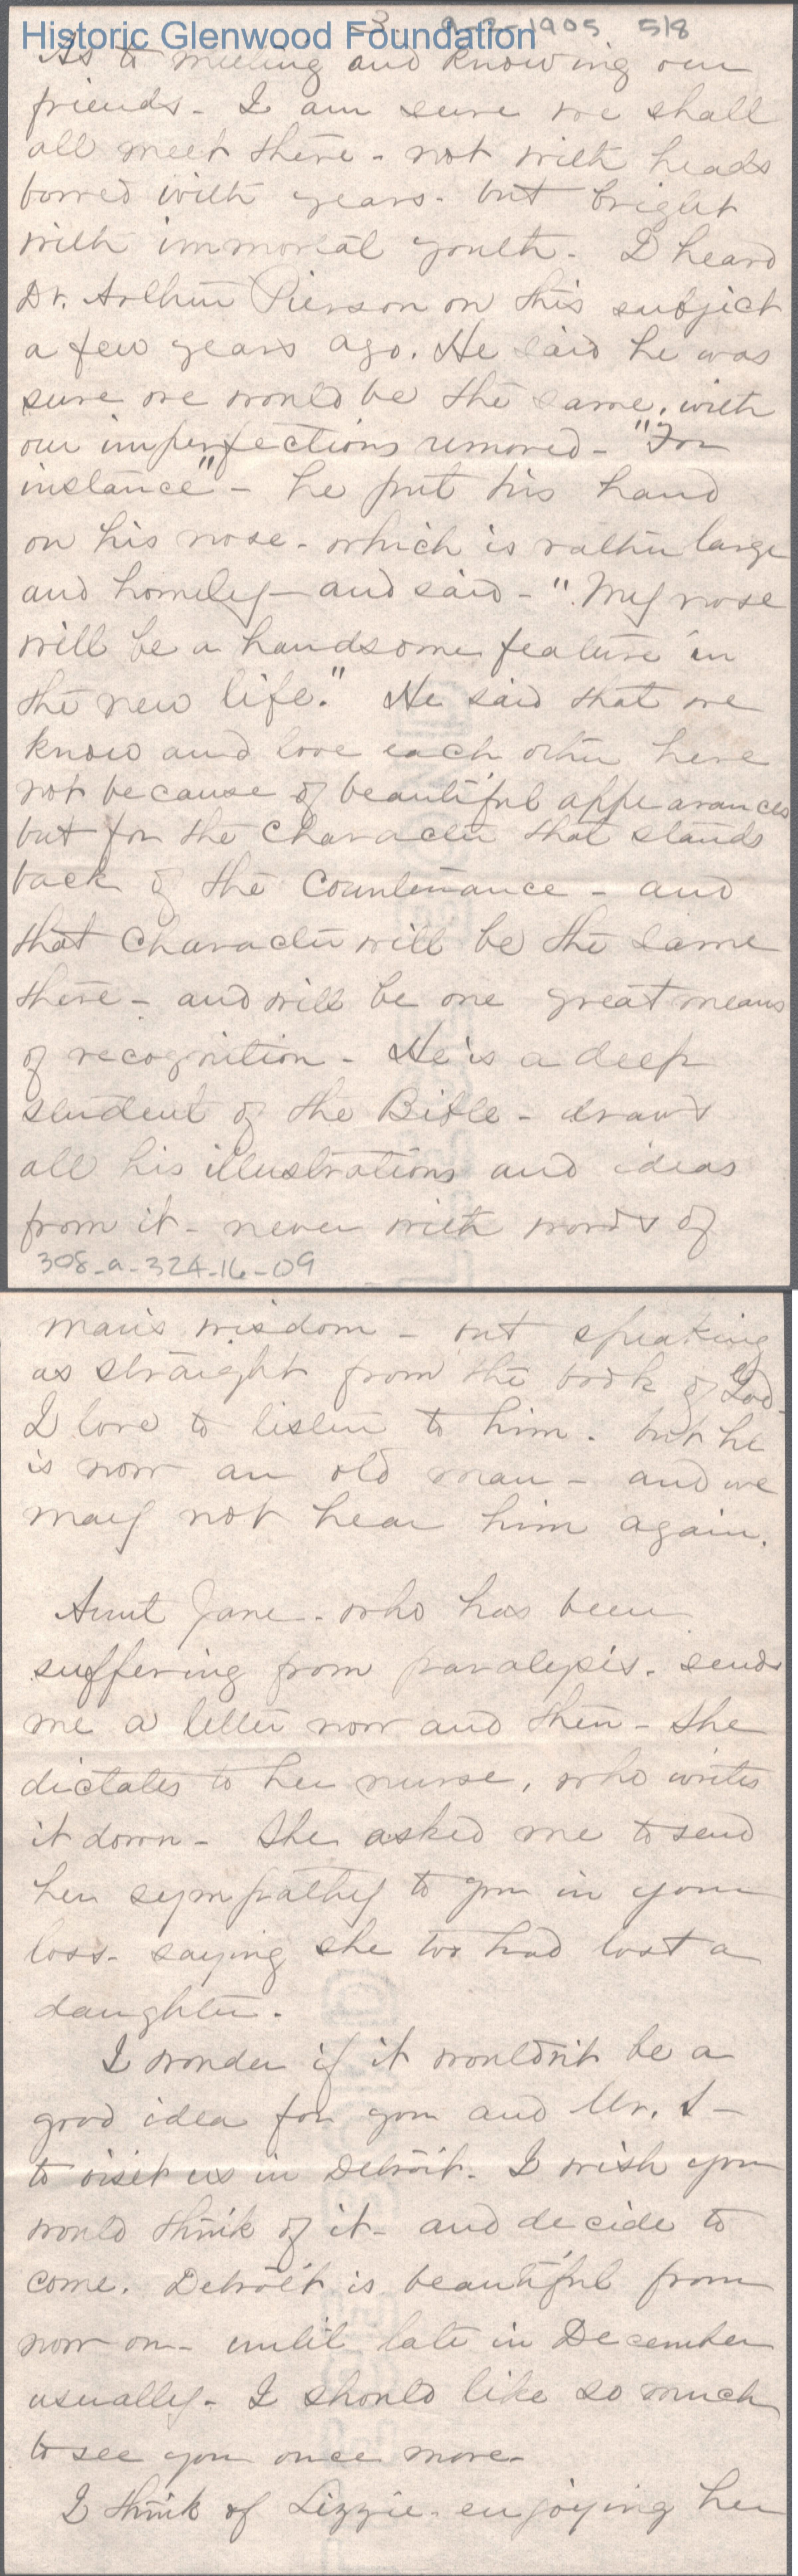 Historic Glenwood Foundation
3 9-2-1905 5/8
As to meeting and knowing our
friends - I am sure we shall
all meet there - not with heads
bowed with years - but bright
with immortal youth - I heard
Dr. Arthur Pierson on this subject
a few years ago. He said he was
sure we would be the same, with
our imperfections removed - "For
instance" - he put his hand
on his nose - which is rather large
and homely - and said - "My nose
will be a handsome feature in
the new life." He said that we
know and love each other here
not because of beautiful appearances
but for the character that stands
back of the countenance - and
that character will be the same
there - and will be one great means
of recognition - He is a deep
student of the Bible - draws
all his illustrations and ideas
from it - never with words of
308-a-324-16-09
man's wisdom - but speaking
as straight from the book of God.
I love to listen to him - but he
is now an old man - and we
may not hear him again.
Aunt Jane - who has been
suffering from paralysis - sends
me a letter now and then - She
dictates to her nurse, who writes
it down - She asked me to send
her sympathy to you in your
loss - saying she too had lost a
daughter -
I wonder if it wouldn't be a
good idea for you and Mr. S -
to visit us in Detroit. I wish you
would think of it - and decide to
come. Detroit is beautiful from
now on - until late in December
usually - I should like so much
to see you once more -
I think of Lizzie - enjoying her